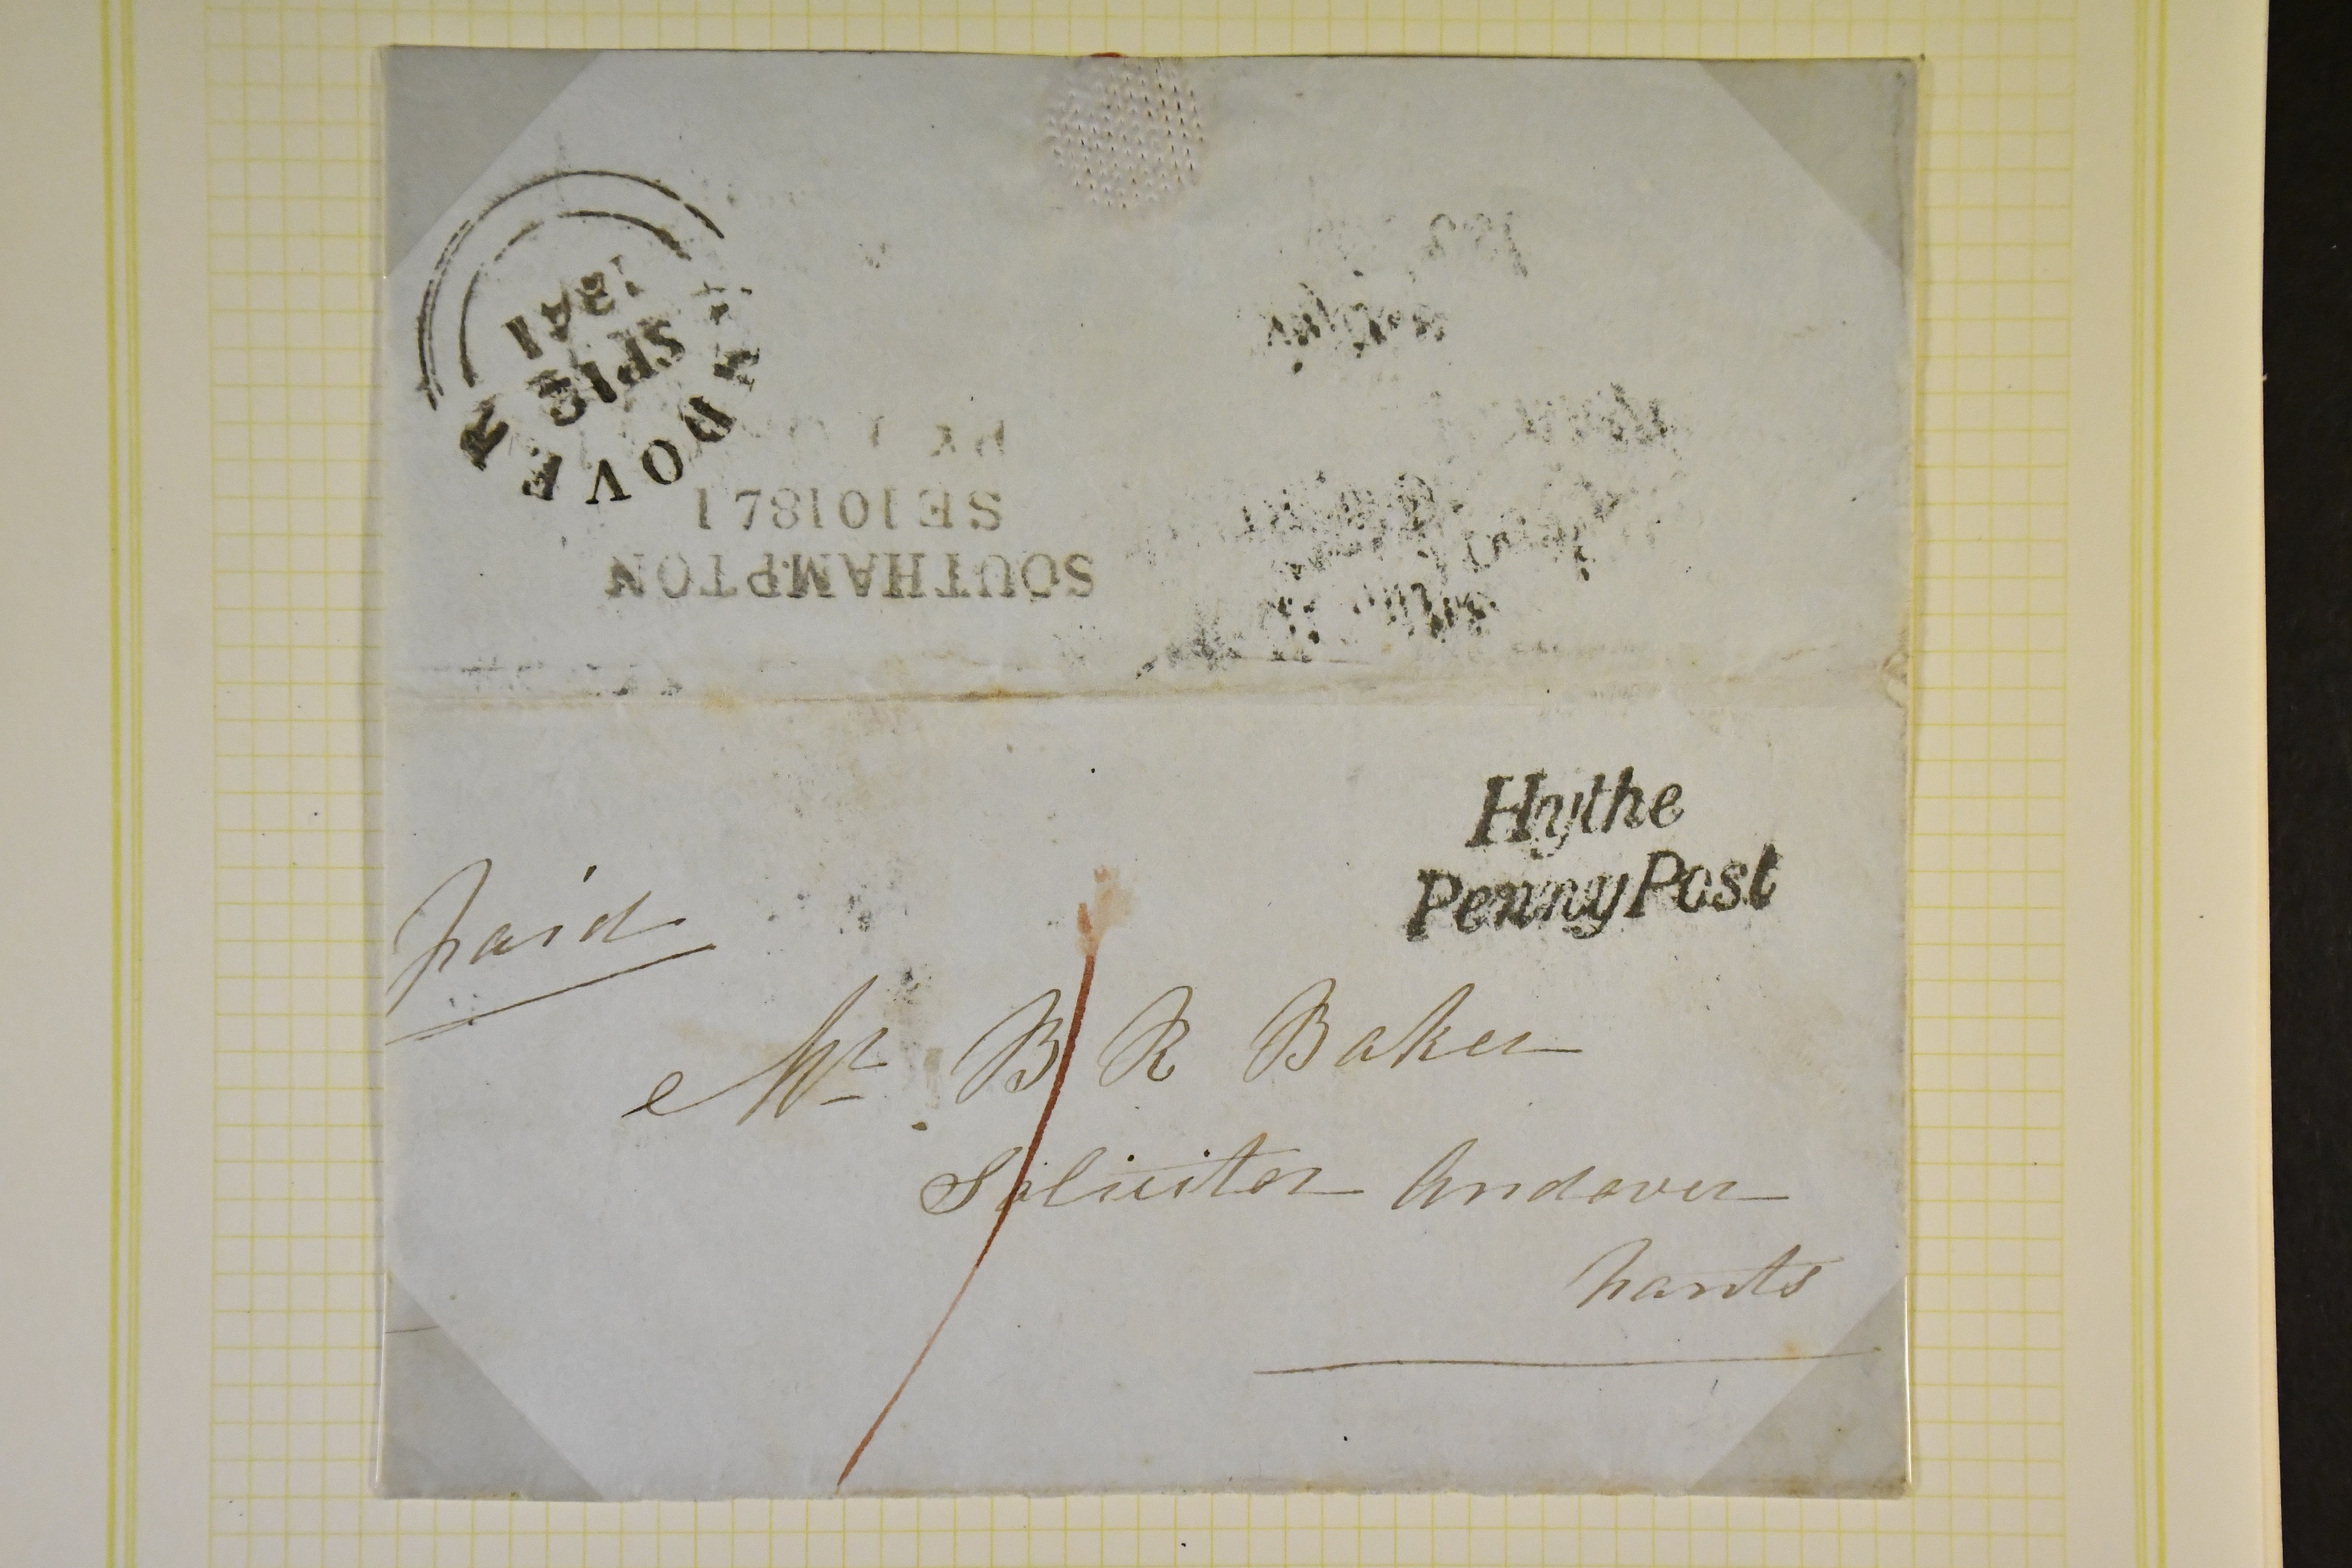 ANDOVER
SP 12
1841
SOUTHAMPTON
SE 10 1841
Hythe
Penny Post
paid
Mr B R Baker
Solicitor Andover
hants